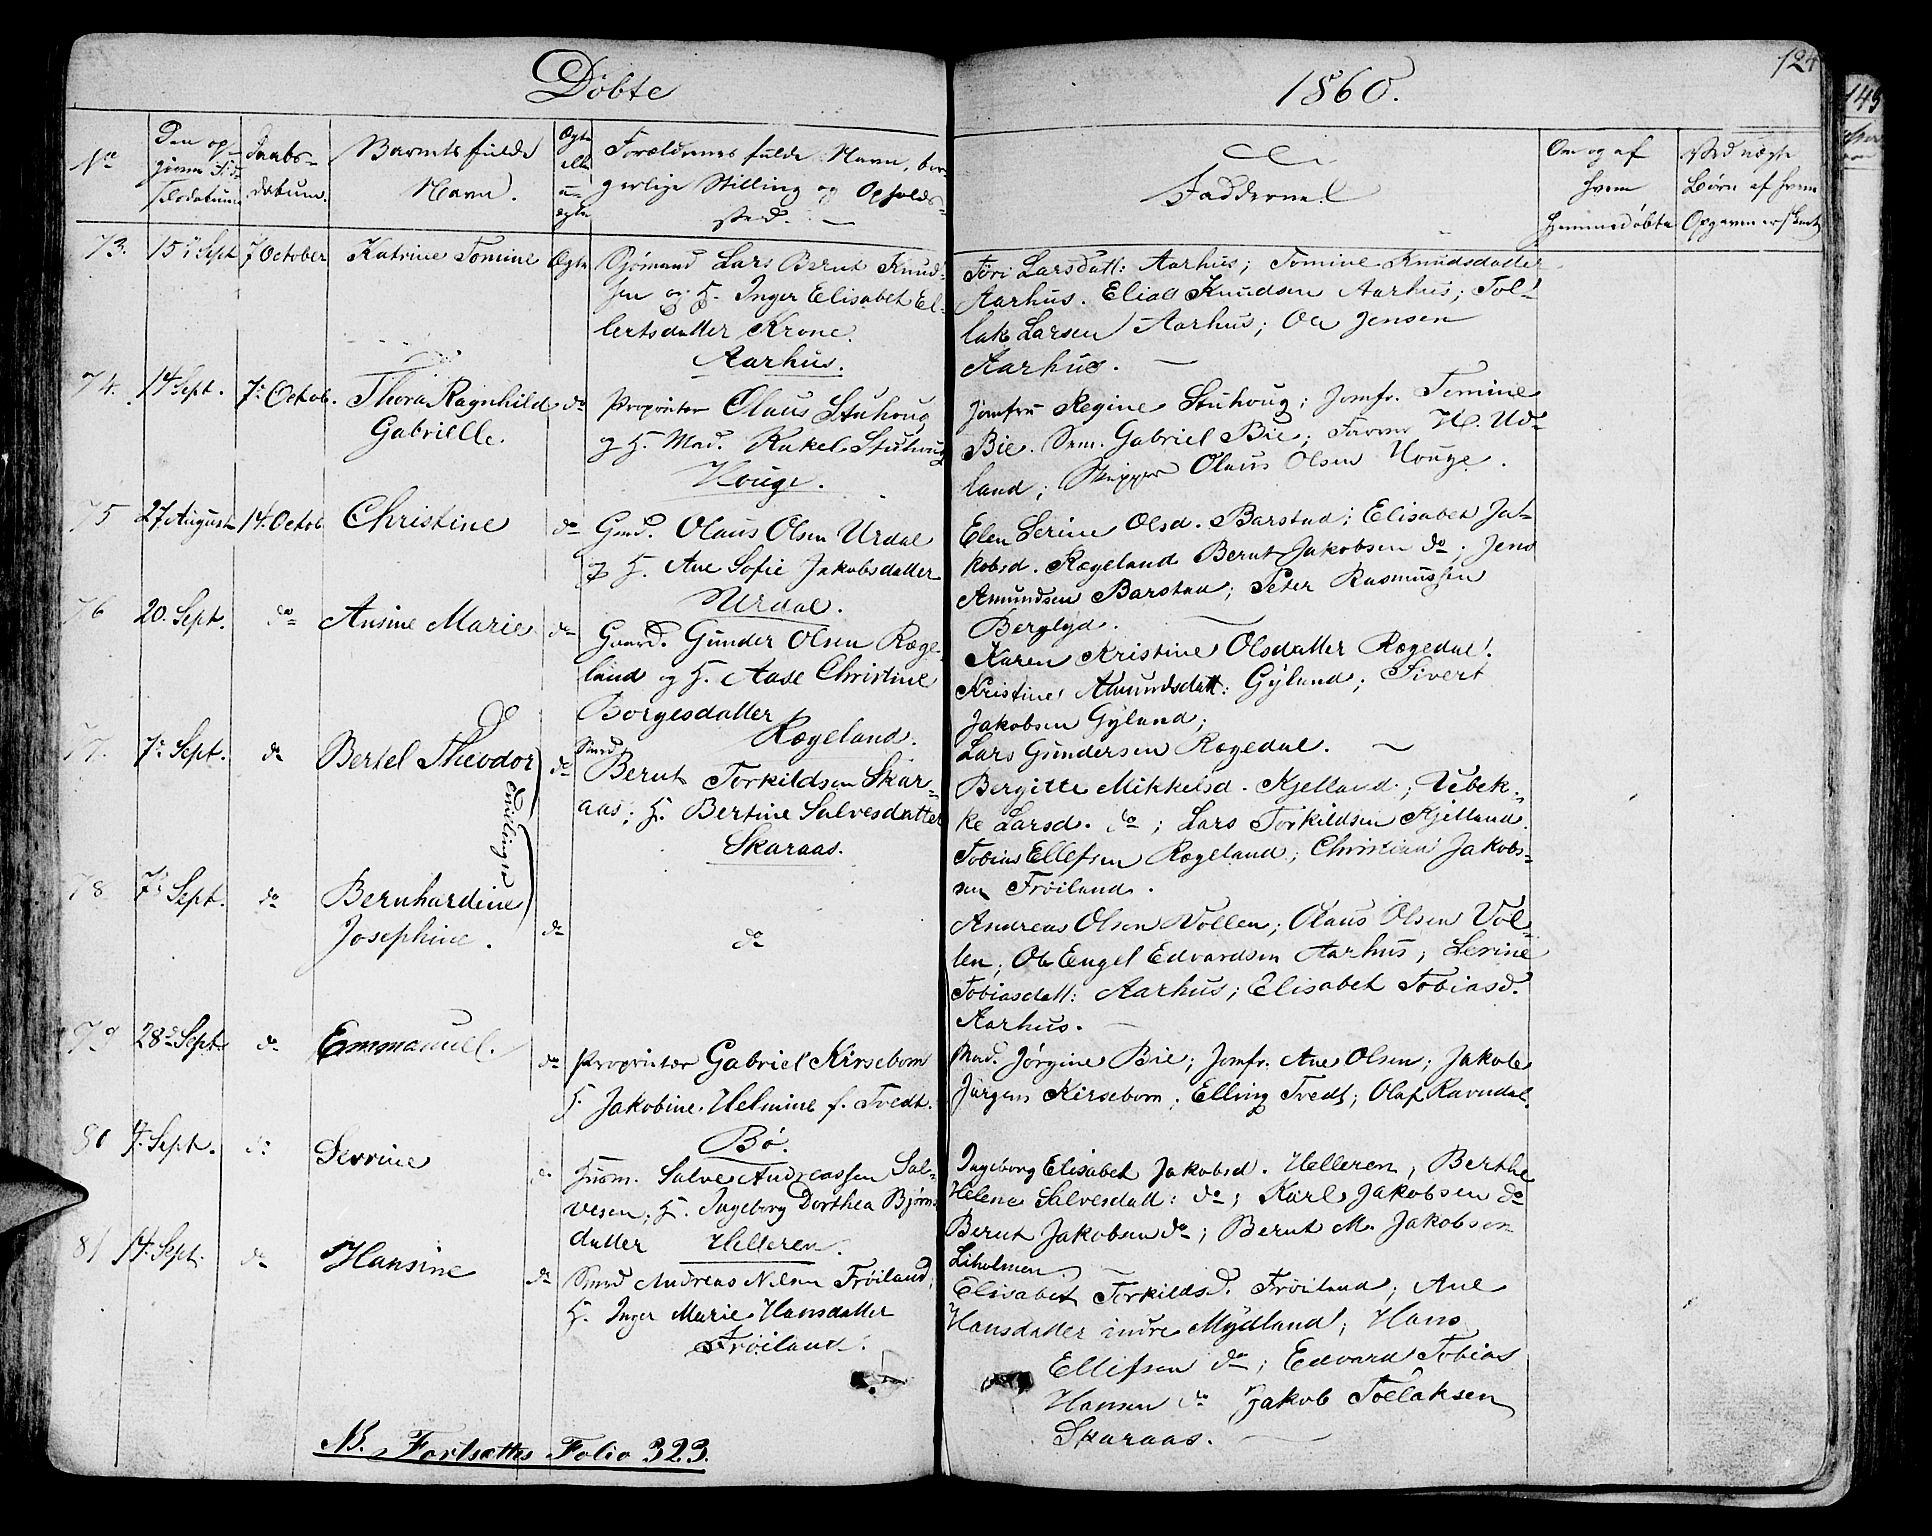 Döbte
1860.
124
No
Den op-
givne Fød-
selsdatum
Daabs-
datum.
Barnets fulde
Navn.
Ægte
eller
u-
ægte
Forældrenes fulde Navn, bor-
gerlige Stilling og Opholds-
sted.
Faddernes
Om og af
hvem
hjemmedöbte
Ved uægte
Børn af hvem
Opgaven er skeet
73. 15de Sept 7 October Katrine Tomine Ægte Sjömand Lars Bernt Knud-
sen og H. Inger Elisabet El-
lertsdatter Krone.
Aarhus.
Töri Larsdatt: Aarhus; Tomine Knudsdatter
Aarhus. Elias Knudsen Aarhus; Tol-
lak Larsen Aarhus; Ole Jensen
Aarhus.
74. 14 Sept. 7. Octob. Thora Ragnhild do Proprietær Olaus Stuhoug
Gabrielle.
og H. Mad. Rakel Stuhoug
Houge.
Jomfru Regine Stuhoug; Jomfr. Tomine
Bie. Sem. Gabriel Bie; Farver H. Ud-
land; Skipper Olaus Olsen Houge.
75 27 August 14. Octob. Christine do Gmd. Olaus Olsen Urdal
og H. Ane Sofie Jakobsdatter
Urdal.
Elen Serine Olsd. Barstad; Elisabet Ja-
kobsd. Rægeland Bernt Jakobsen do; Jens
Amundsen Barstad; Peter Rasmussen
Berglyd.
76 20. Sept. do Ansine Marie do Gaard. Gunder Olsen Ræge-
land og H. Aase Christine
Borgesdatter
Rægeland.
Karen Kristine Olsdatter Rægedal.
Kristine Amundsdatt: Gyland; Sivert
Jakobsen Gyland;
Lars Gundersen Rægedal.
77. 7. Sept. do Bertel Theodor do Smed
Bernt Torkildsen Skar-
aas; H. Bertine Salvesdatter
Skaraas.
Tvillinger
Bergitte Mikkelsd. Kjelland; Vibek-
ke Larsd. do; Lars Torkildsen Kjelland.
Tobias Ellefsen Rægeland; Christian Jakob-
sen Fröiland.
78 7. Sept. do Bernhardine
Josephine. do do
Andreas Olsen Vollen; Olaus Olsen Vol-
len; Ole Engel Edvardsen Aarhus; Serine
Tobiasdatt: Aarhus; Elisabet Tobiasd.
Aarhus.
79 28de Sept do Emmanuel. do Proprietær Gabriel Kirsebom
H. Jakobine Helmine f. Tvedt.
Bö.
Mad. Jörgine Bie; Jomfr. Ane Olsen; Jakob
Jürgen Kirsebom; Elling Tvedt; Olaf Ravndal.
80 4. Sept. do Serrine do Husm. Salve Andreassen Sal-
vesen; H. Ingeborg Dorthea Bjørns
datter Helleren.
Ingeborg Elisabet Jakobsd. Helleren; Berthe
Helene Salvesdatt: do; Karl Jakobsen do
Bernt Jakobsen do; Bernt M. Jakobsen
Liholmen.
81 14. Sept. do Hansine do Smed Andreas Nilsen Fröiland;
H. Inger Marie Hansdatter
Fröiland.
Elisabet Torkilds d. Fröiland; Ane
Hansdatter indre Mydland; Hans
Ellefsen do; Edvard Tobias
Hansen do Jakob Tollaksen
Skaraas.
NB. Fortsættes Folio 323.